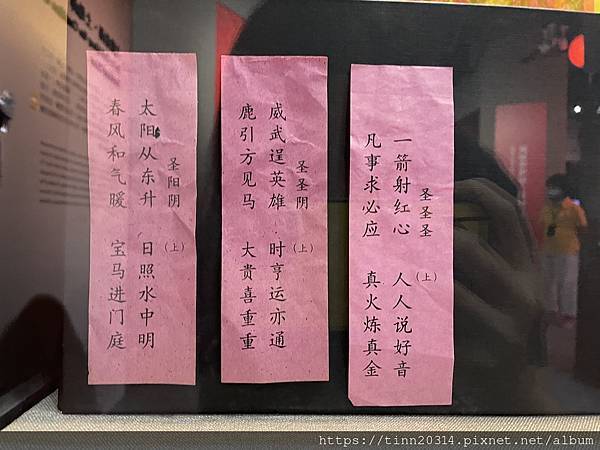 圣圣圣 （上）
一箭射红心 人人说好音
凡事求必应 真火炼真金
圣圣阴 （上）
威武逞英雄 时亨运亦通
鹿引方见马 大贵喜重重
圣阳阴 （上）
太阳从东升 日照水中明
春风和气暖 宝马进门庭
https://tinn20314.pixnet.net/album